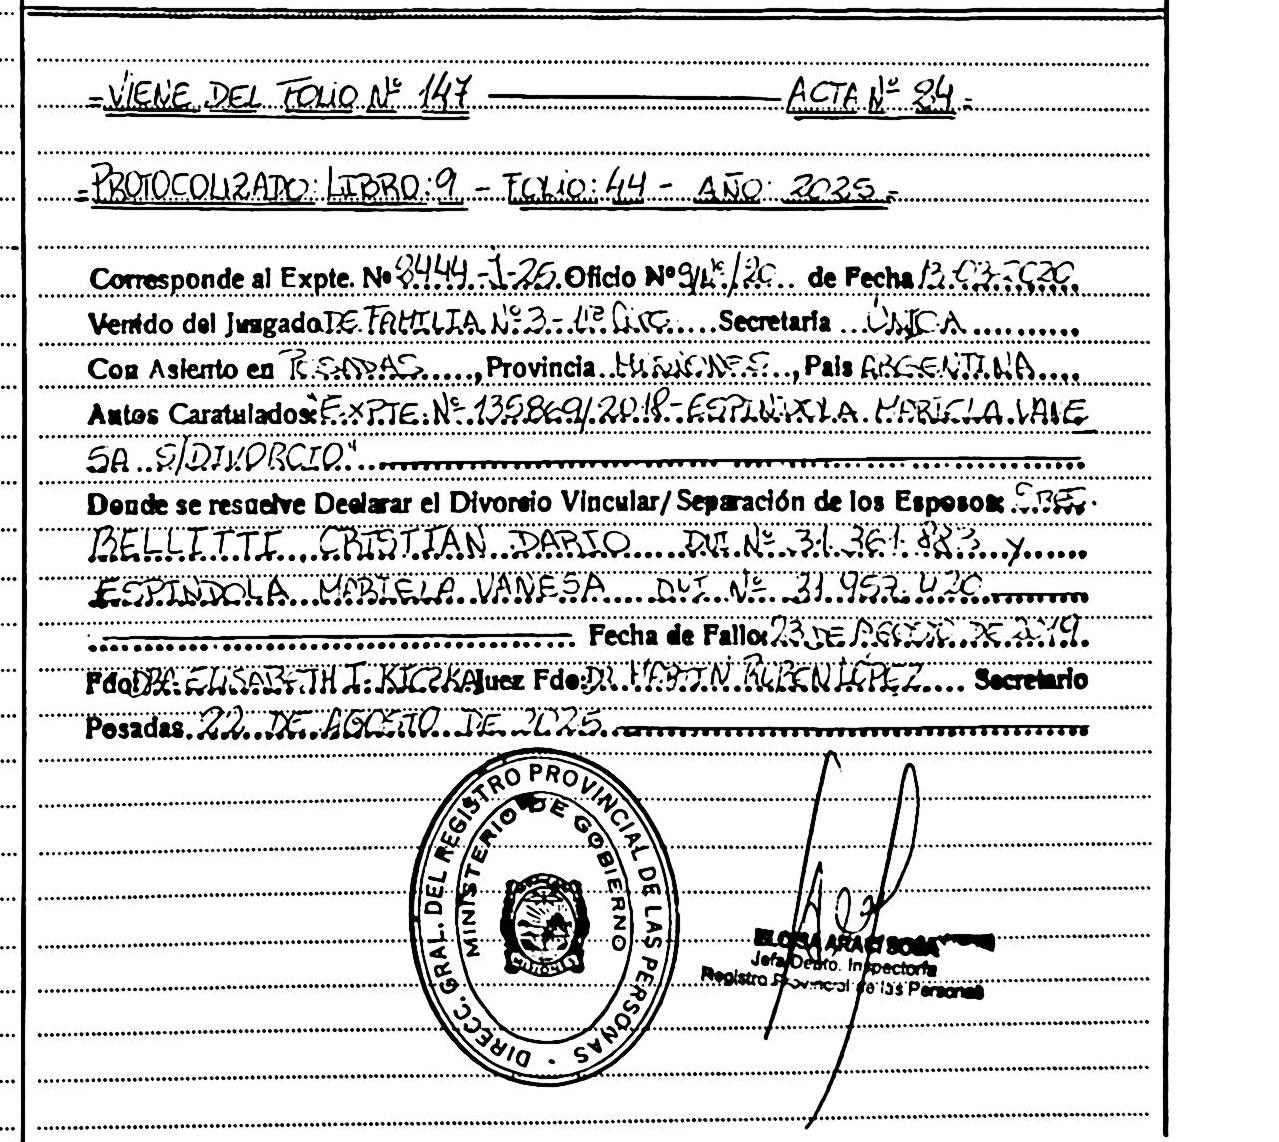 =VIENE DEL FOLIO Nº 147 ACTA Nº 24=
=PROTOCOLIZADO: LIBRO: 9 - FOLIO: 44 - AÑO: 2025=
Corresponde al Expte. Nº 8444-1-25 Oficio Nº /20 de Fecha 13-03-2020
Venido del Juzgado DE FAMILIA Nº 3 - 1ra Circ. Secretaría ÚNICA
Con Asiento en POSADAS, Provincia MISIONES, Pais ARGENTINA
Autos Caratulados: "EXPTE. Nº 135869/2018- MARIELA VANE
SA S/DIVORCIO"
Donde se resuelve Declarar el Divorcio Vincular/ Separación de los Esposos: SRES.
BELLITTI CRISTIAN DARIO DNI Nº 31.361.883 y
ESPINDOLA MARIELA VANESA DNI Nº 31.957.420
Fecha de Fallo: 23 DE AGOSTO DE 2019.
Fdo: DRA. ELISABETH I. KICZKA Juez Fdo: DR. MARTIN RUBEN LÓPEZ Secretario
Posadas 22 DE AGOSTO DE 2025
DIRECC. GRAL. DEL REGISTRO PROVINCIAL DE LAS PERSONAS
MINISTERIO DE GOBIERNO
ELOISA ARACI SOSA
Jefa Depto. Inspectoría
Registro Provincial de las Personas